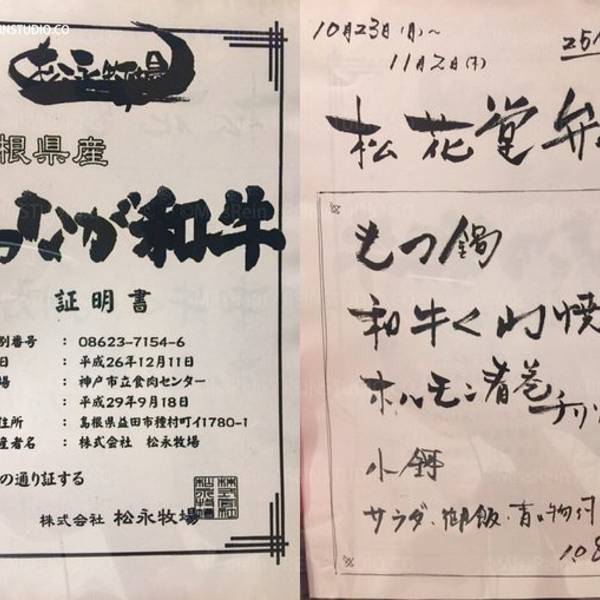 INSTUDIO.CO
松永牧場
根県産
なが和牛
証明書
別番号 : 08623-7154-6
日 : 平成26年12月11日
場 : 神戸市立食肉センター
: 平成29年9月18日
住所 : 島根県益田市種村町イ1780-1
産者名 : 株式会社 松永牧場
の通り証する
株式会社 松永牧場
10月23日(月)~
11月2日(木)
251
松花堂弁
もつ鍋
和牛くし焼
ホルモン春巻
チリソ
小鉢
サラダ、御飯、香の物付
108